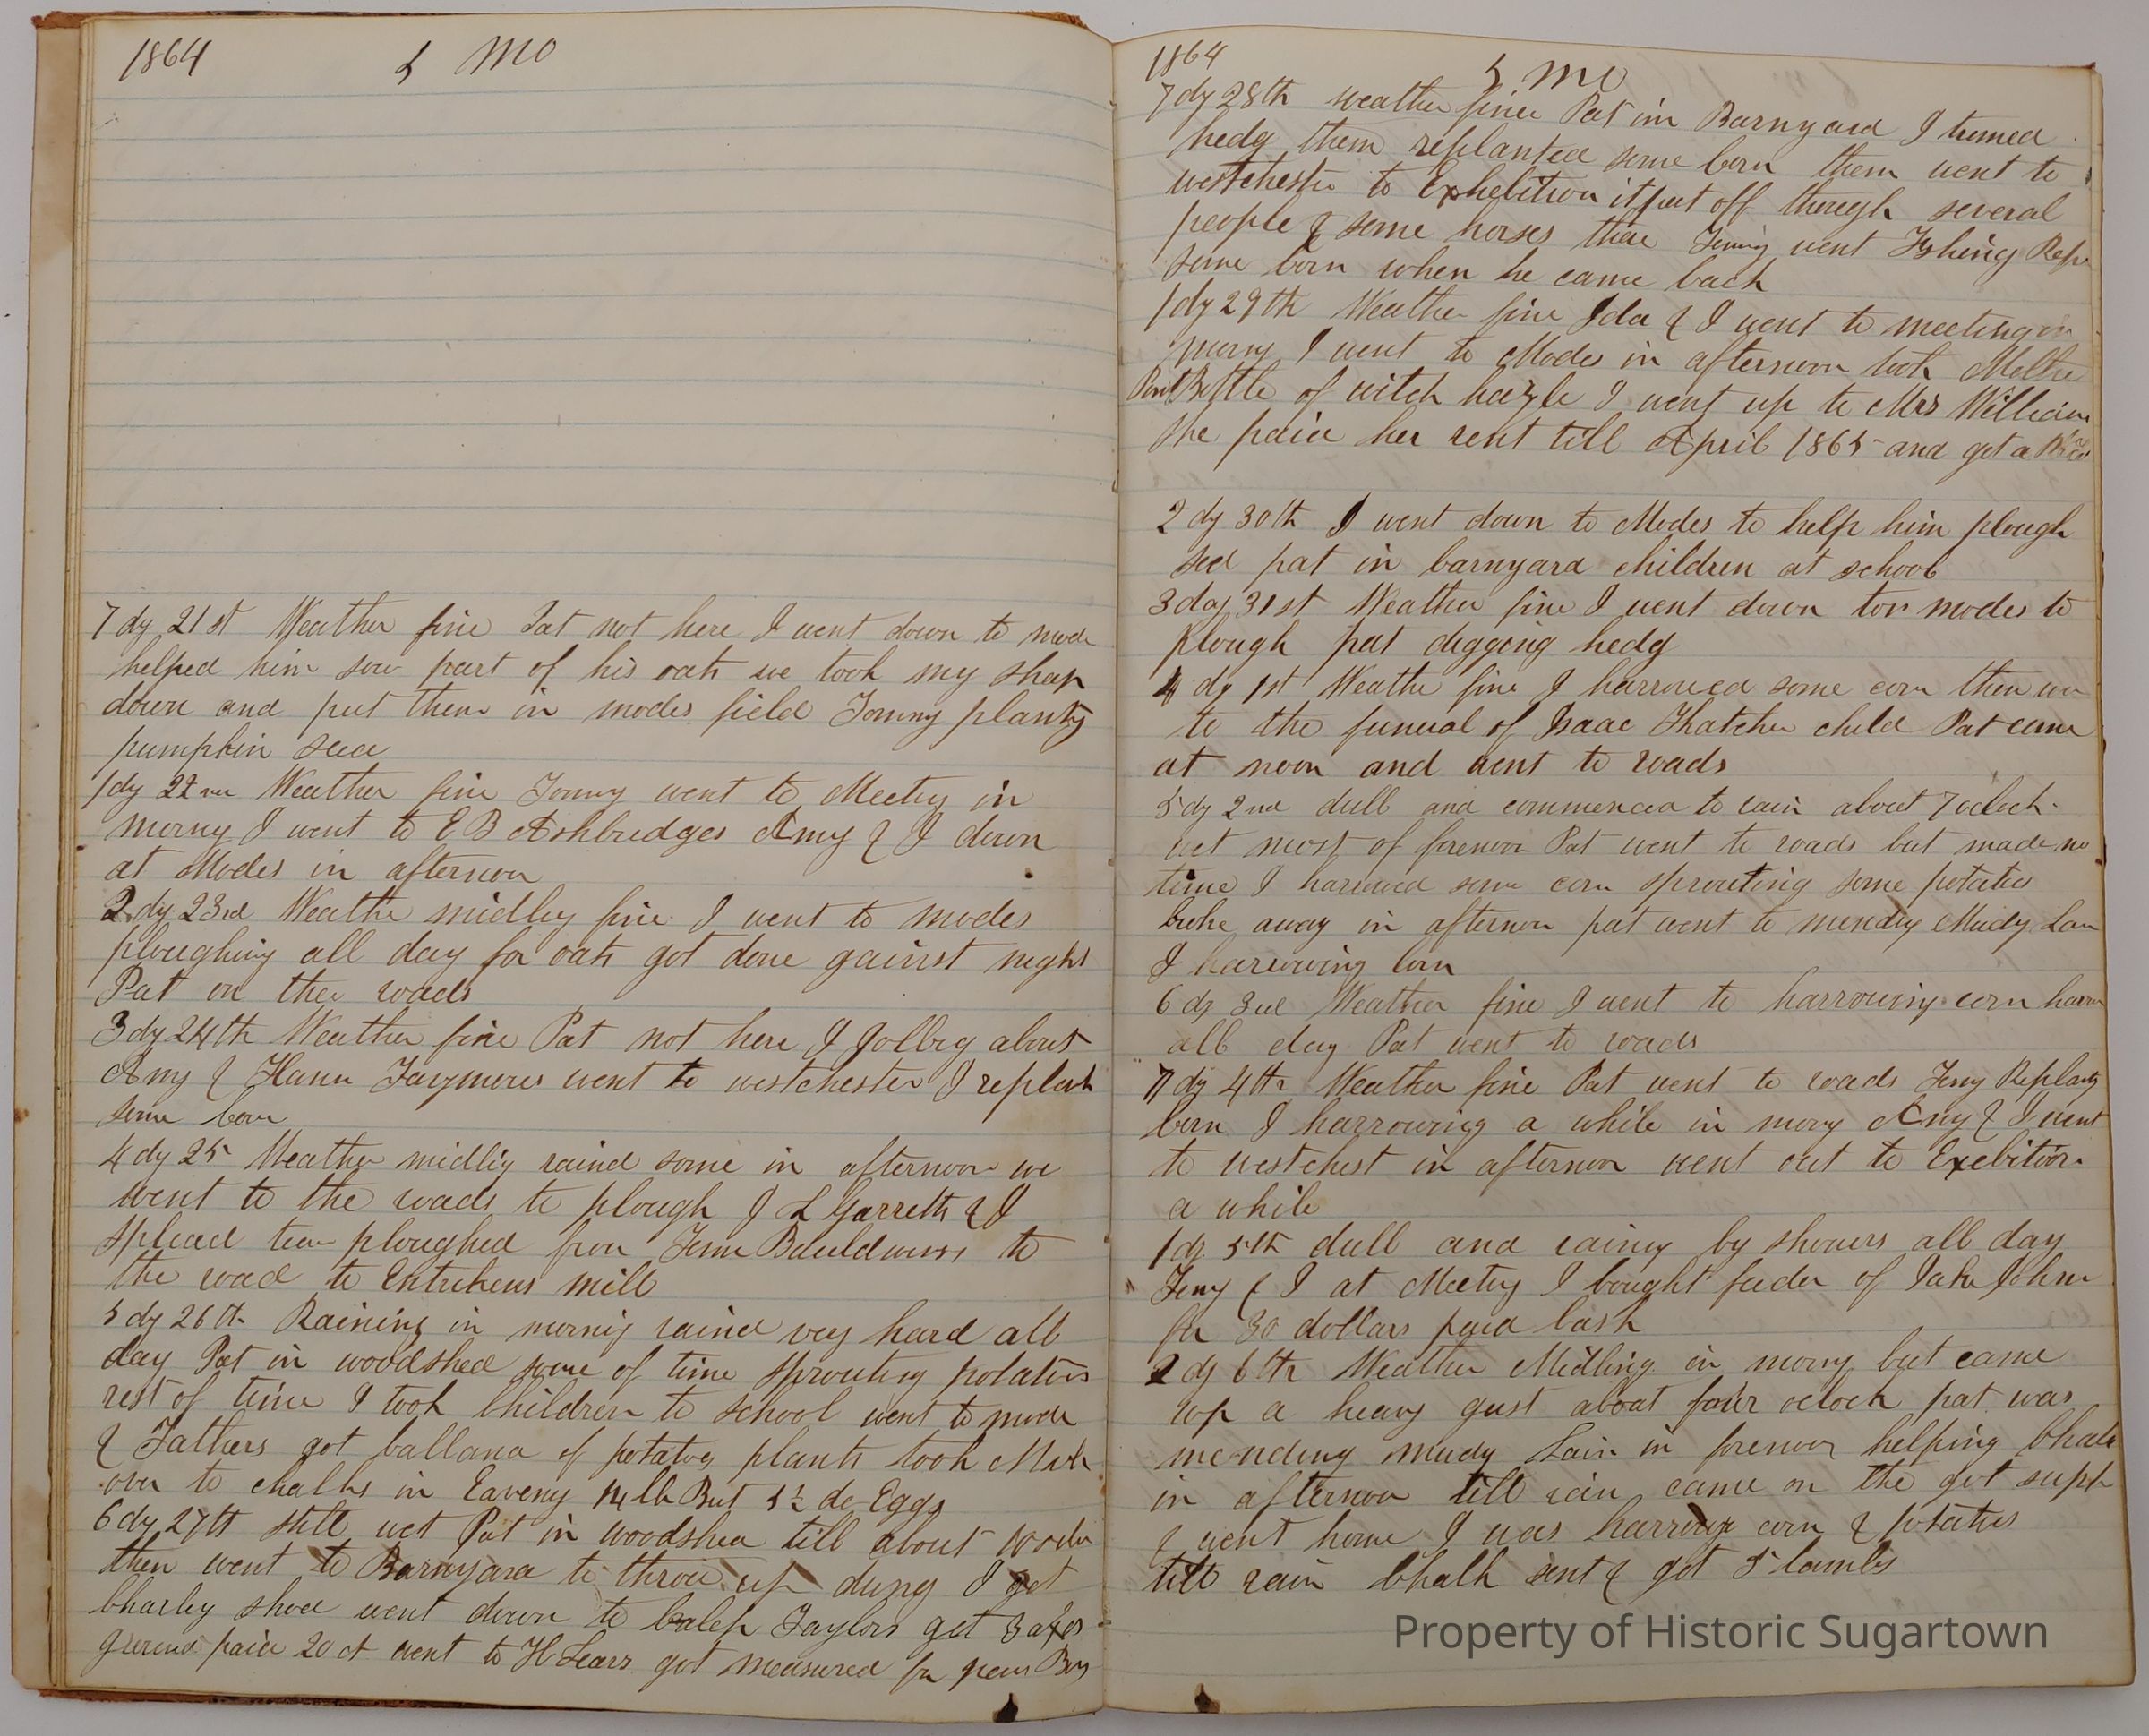 1864 5 Mo
7 dy 21st Weather fine Pat not here I went down to mode
helped him sow part of his oats we took my sheap
down and put them in modes field Tommy planty
pumpkin seed
1dy 22nd Weather fine Tommy went to Meeting in
morny I went to E B Ashbridges Amy & I down
at Modes in afternoon
2 dy 23rd Weathe midling fine I went to modes
ploughing all day for oats got done gainst night
Pat on the roads
3 dy 24th Weather fine Pat not here I Jolbig about
Amy & Hann went to westchester I replant
some corn
4 dy 25 Weather midlig raind some in afternoon we
went to the roads to plough J L Garretts & I
team ploughed from to
the road to Entrikens mill
5 dy 26th Raining in mornig raind very hard all
day Pat in woodshed some of time sprouting potatoes
rest of time I took Children to school went to mode
& Fathers got ballance of potatoe plants took
over to chalks in Eaveny 14 lb But 5½ do Eggs
6 dy 27th still wet Pat in woodshed till about
then went to Barnyard to throw up dung I got
Charley shod went down to Caleb Taylors get 3 axes
ground paid 20 ct went to H Lears got measured for pear
1864 5 mo
7 dy 28th weather fine Pat in Barnyard I trimed
hedg then replanted some corn then went to
westchester to Exhebition it put off though several
people & some horses there went Fishing Repl
some corn when he came back
1 dy 29th Weather fine Ida & I went to meeting in
morny I went to Modes in afternoon took
Bottle of witch hazle I went up to Mrs William
she paid her rent till April 1865 and got a
2 dy 30th I went down to Modes to help him plough
sed pat in barnyard children at school
3 day 31st Weather fine I went down ton modes to
plough pat digging hedg
4 dy 1st Weathe fine I harrowed some corn then wen
to the funeral of Isaac Thatcher child Pat came
at noon and went to roads
5 dy 2nd dull and commenced to rain about 7 oclock
wet most of forenoon Pat went to roads but made no
time I harrowed some corn sprouting some potatoes
broke away in afternoon pat went to mendig Mudy Lan
I harrowing Corn
6 dy 3rd Weather fine I went to harrowing corn harrow
all day Pat went to roads
7 dy 4th Weather fine Pat went to roads Replanty
Corn I harrowing a while in morny Amy & I went
to westchest in afternoon went out to Exebition
a while
1 dy 5th dull and rainy by showers all day
& I at Meeting I bought feeder of Jake Johns
for 30 dollars paid Cash
2 dy 6th Weather Midling in morny but came
up a heavy gust about four oclock pat was
mending Mudy Lain in forenoon helping Chalk
in afternoon till rain came on the got supp
& went home I was harrowg corn & potatoes
till rain Chalk sent & got 5 lambs
Property of Historic Sugartown